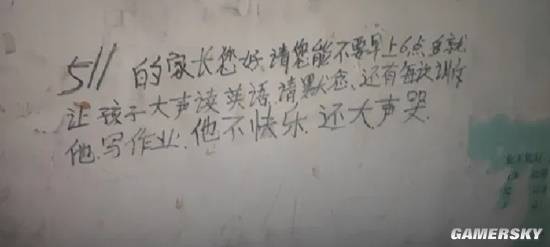 511 的家长您好.请您能不要早上6点多就
让孩子大声读英语.请默念.还有每次训斥
他.写作业.他不快乐.还大声哭.
GAMERSKY